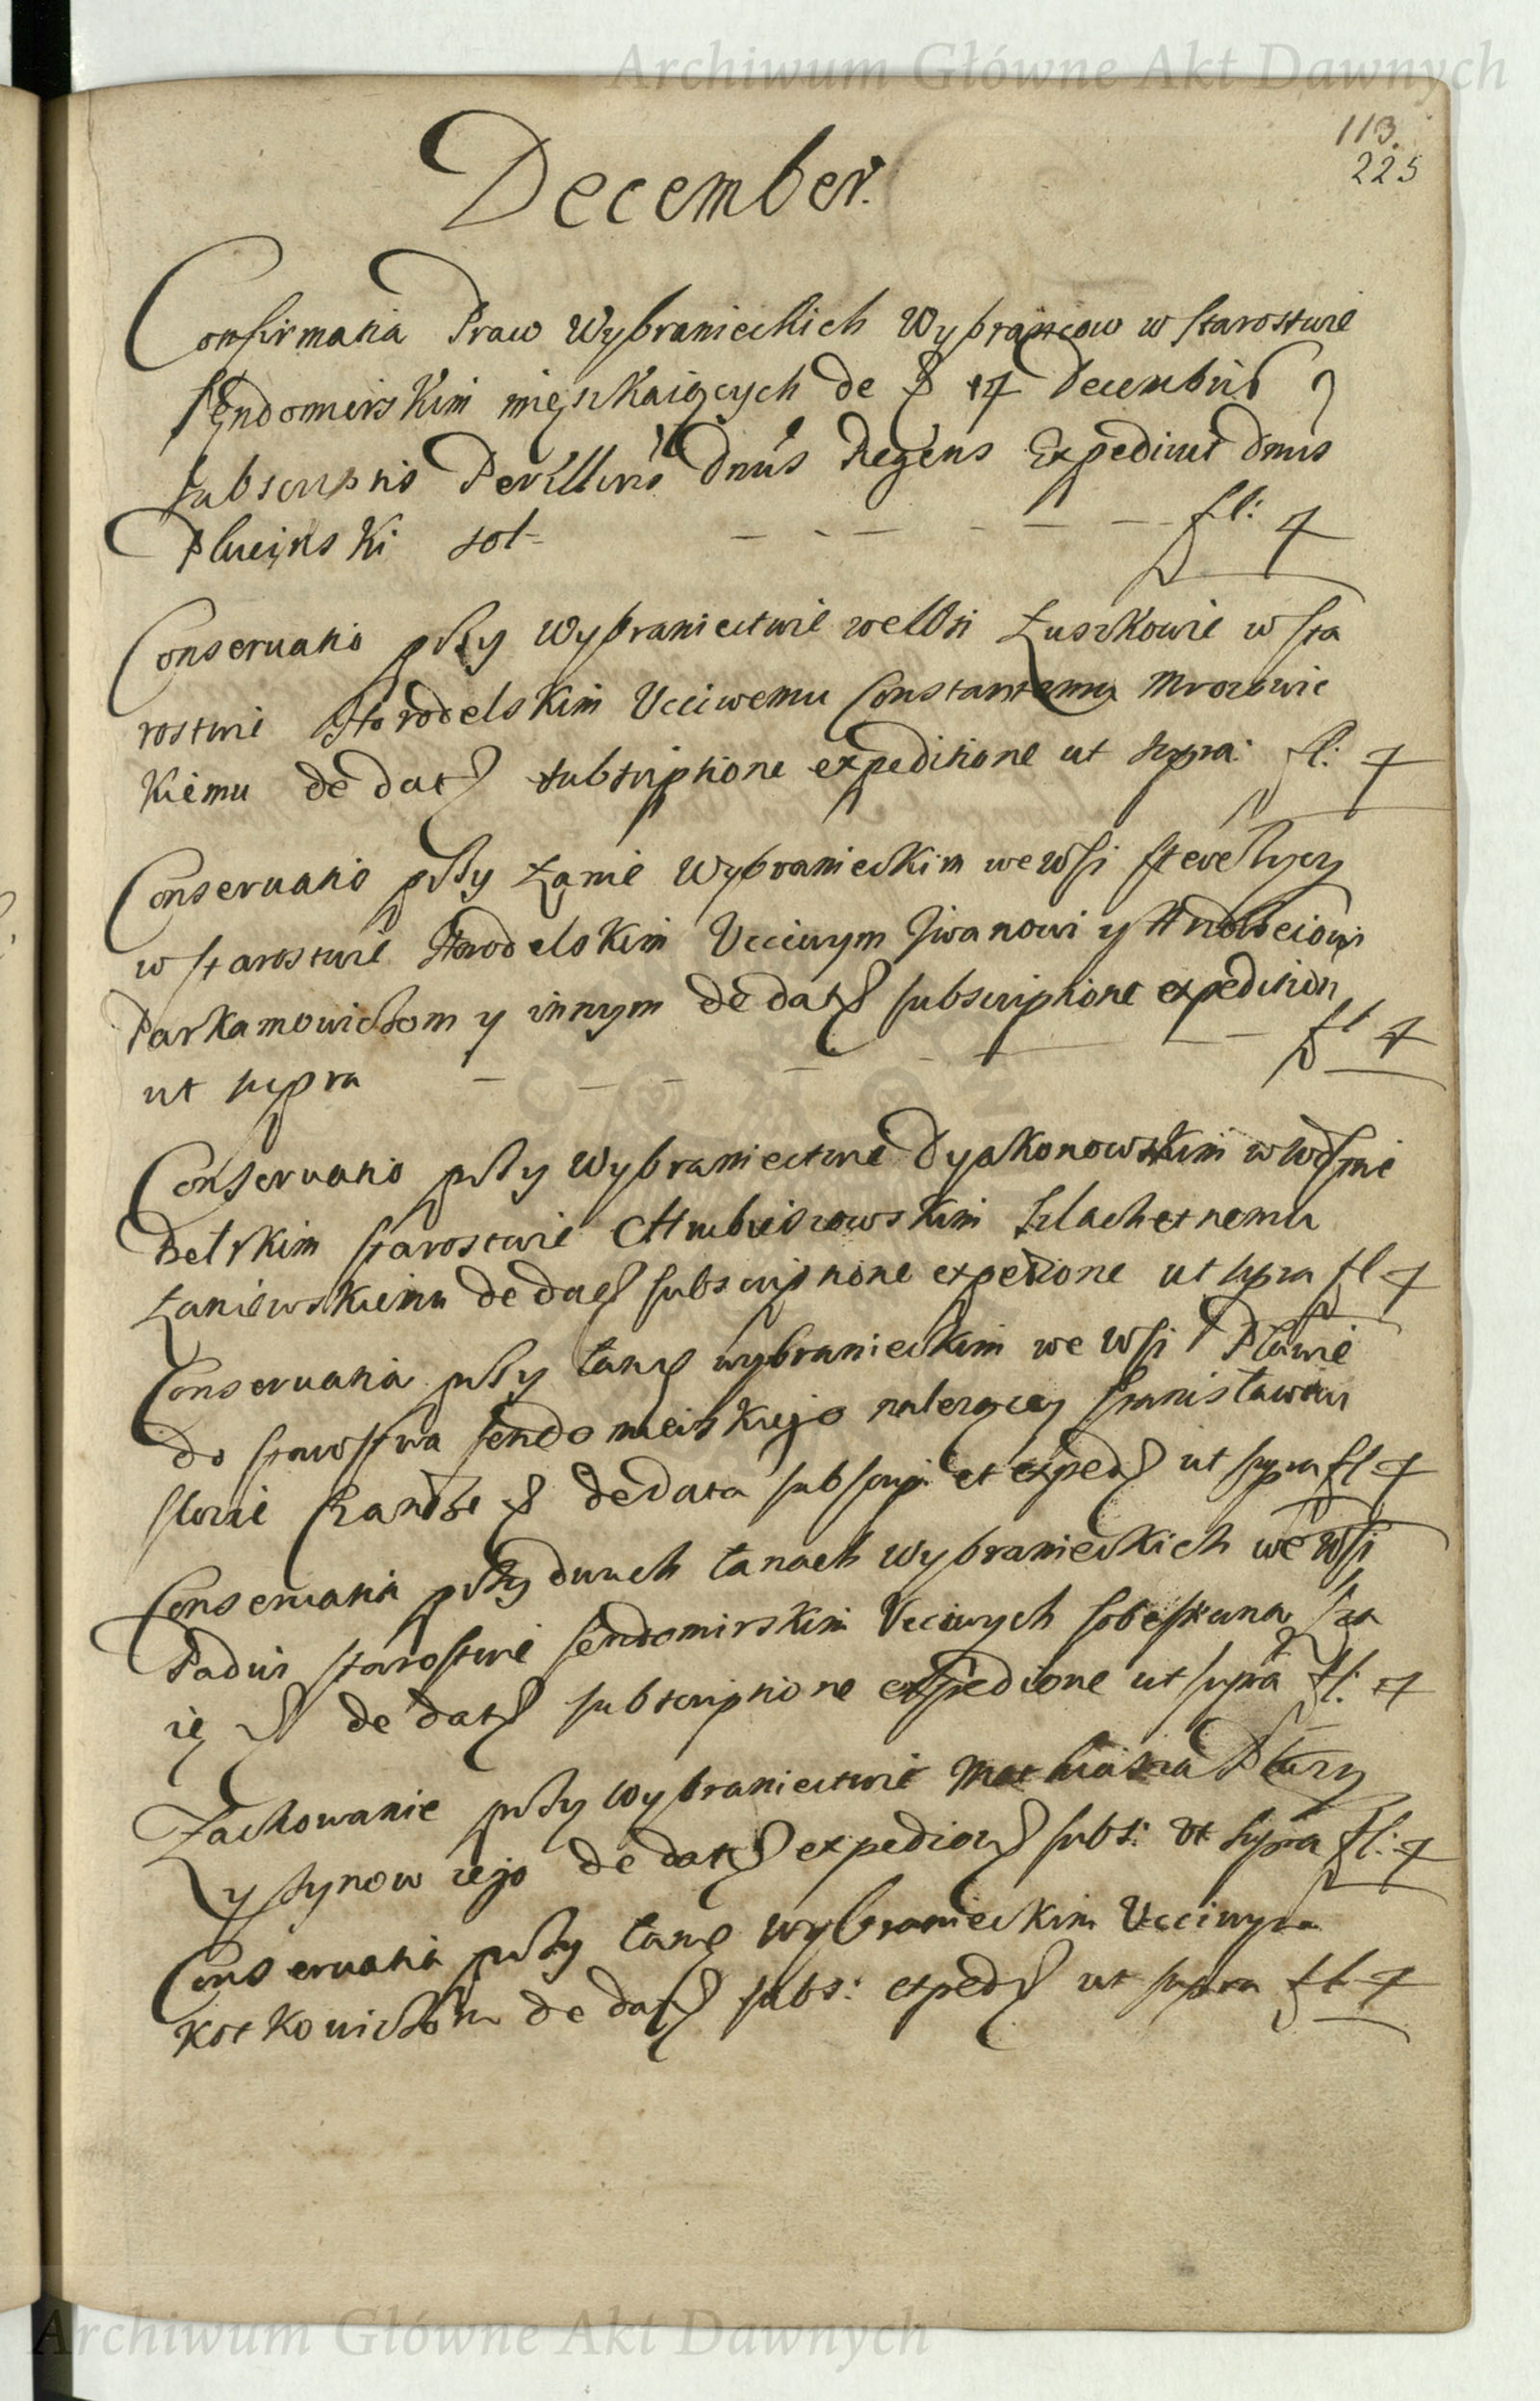 Archiwum Główne Akt Dawnych
113.
225
December.
Confirmatia Praw Wybranieckich Wybrańcow w starostwie
Sędomirskim mięszkaiących de 17 Decembris
subscriptio Perillris Dnus Regens Expedivit Dnus
sol- fl: 4
Conservatio przy Wybraniectwie we Wsi Łuszkowie w sta
rostwie Horodelskim Ucciwemu Constantemu Mrozowic
kiemu de dat subscriptione expeditione ut supra: fl: 4
Conservatio przy Łanie Wybranieckim we Wsi
w starostwie Horodelskim Ucciwym Iwanowi y
Parkamowiczom y innym de dat subscriptione expedition
ut supra fl 4
Conservatio przy Wybraniectwie Dyakonowskim w Wdztwie
Bełzkim starostwie Hrubieszowskim Szlachetnemu
Łaniewskiemu de dat subscriptione expedione ut supra fl 4
Conservatia przy łanie wybranieckim we Wsi Pławie
do starostwa Sendomirskiego należącey Stanisławowi
de data subscrip et exped ut supra fl 4
Conservatia przy dwuch łanach Wybranieckich we Wsi
starostwie Sendomirskim Ucciwych Sobestiana
ię de dat subscriptione expedione ut supra fl: 4
Zachowanie przy Wybraniectwie Mathiasza
y synow iego de dat expedio subs: ut supra fl: 4
Conservatia przy łanie Wybranieckim Ucciwym
Kotkowiczom de dat subs: exped ut supra fl 4
Archiwum Główne Akt Dawnych